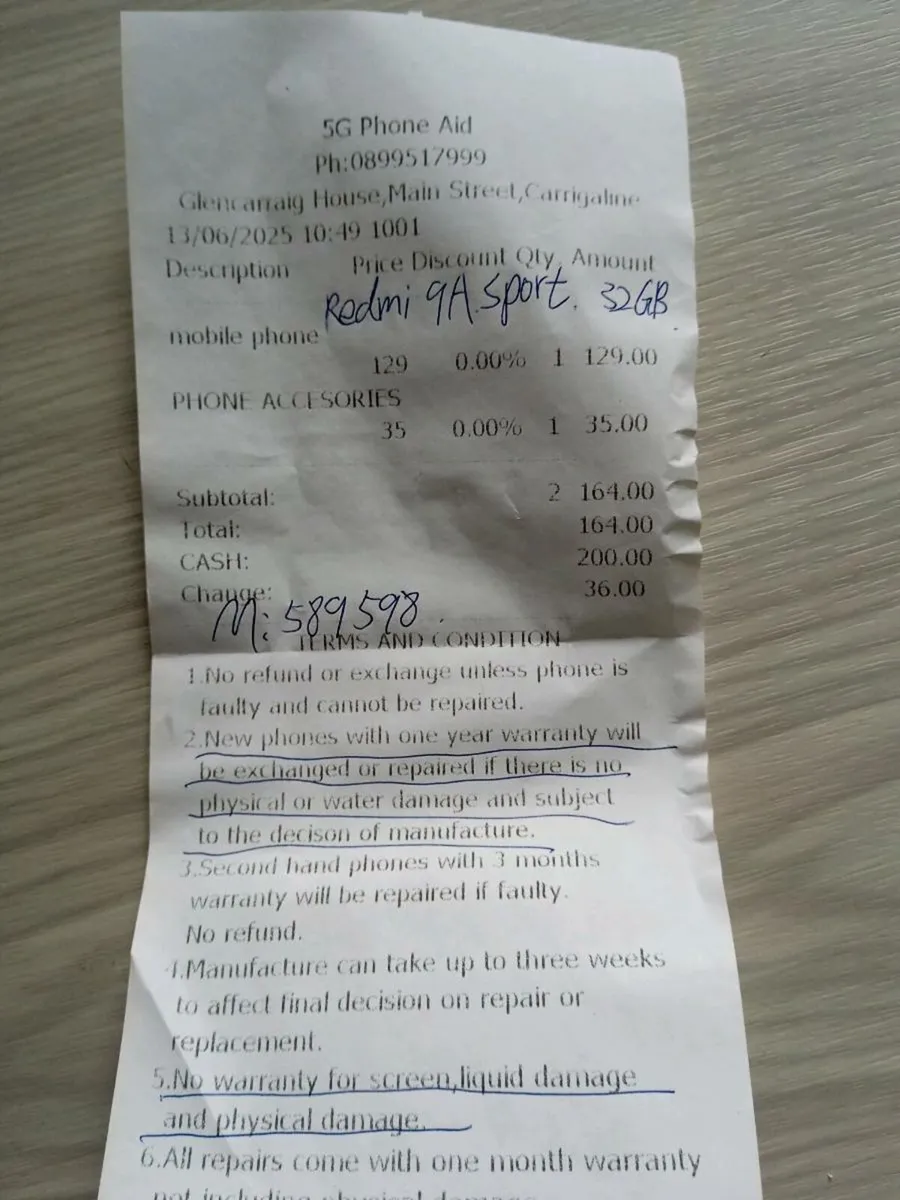 5G Phone Aid
Ph:0899517999
Glencarraig House,Main Street,Carrigaline
13/06/2025 10:49 1001
Description Price Discount Qty. Amount
Redmi 9A.Sport. 32GB
mobile phone
129 0.00% 1 129.00
PHONE ACCESORIES
35 0.00% 1 35.00
Subtotal: 2 164.00
Total: 164.00
CASH: 200.00
Change: 36.00
M: 589598.
TERMS AND CONDITION
1.No refund or exchange unless phone is
faulty and cannot be repaired.
2.New phones with one year warranty will
be exchanged or repaired if there is no
physical or water damage and subject
to the decison of manufacture.
3.Second hand phones with 3 months
warranty will be repaired if faulty.
No refund.
4.Manufacture can take up to three weeks
to affect final decision on repair or
replacement.
5.No warranty for screen,liquid damage
and physical damage.
6.All repairs come with one month warranty
not including physical damage